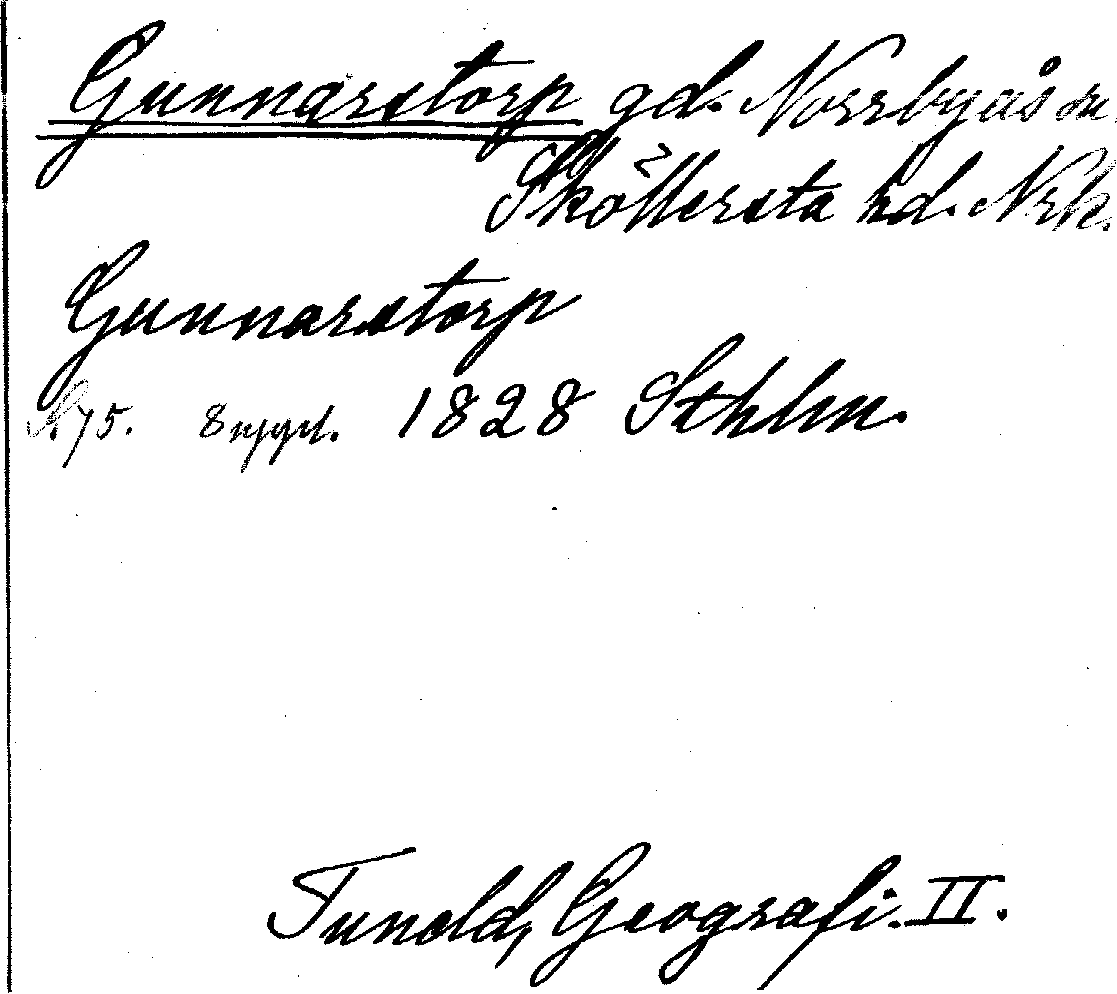 Gunnarstorp gd. Norrbyås sn
Sköllersta hd. Nrk.
Gunnarstorp
S. 75. 8 uppl. 1828 Sthlm.
Tuneld, Geografi. II.